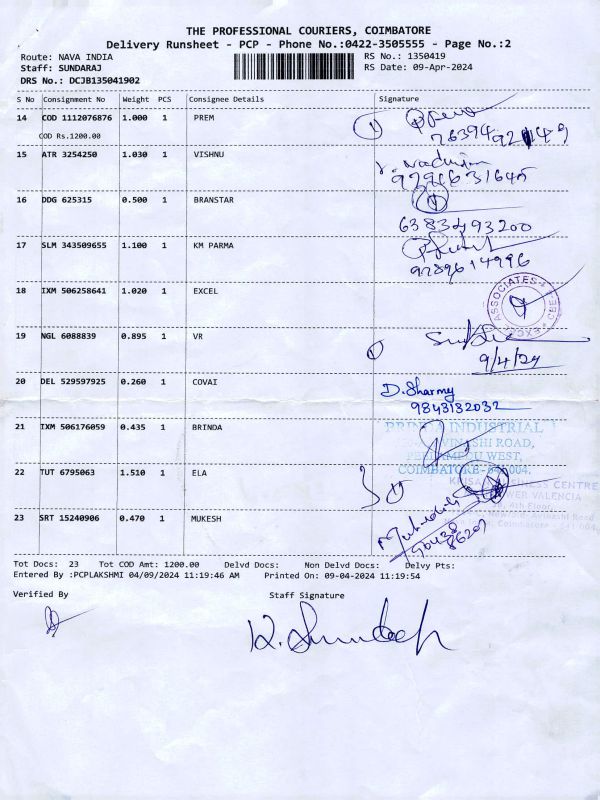 THE PROFESSIONAL COURIERS, COIMBATORE
Delivery Runsheet - PCP - Phone No.:0422-3505555 - Page No.:2
Route: NAVA INDIA RS No.: 1350419
Staff: SUNDARAJ RS Date: 09-Apr-2024
DRS No.: DCJB135041902
S No Consignment No Weight PCS Consignee Details Signature
14 COD 1112076876 1.000 1 PREM
COD Rs.1200.00
15 ATR 3254250 1.030 1 VISHNU
16 DDG 625315 0.500 1 BRANSTAR
6383493200
17 SLM 343509655 1.100 1 KM PARMA
9789614996
18 IXM 506258641 1.020 1 EXCEL
ASSOCIATES
19 NGL 6088839 0.895 1 VR
9/4/24
20 DEL 529597925 0.260 1 COVAI
D.Sharmy
9843182032
21 IXM 506176059 0.435 1 BRINDA
INDUSTRIAL
ROAD,
WEST,
COIMBATORE-641004.
22 TUT 6795063 1.510 1 ELA
BUSINESS CENTRE
TOWER VALENCIA
23 SRT 15240906 0.470 1 MUKESH
Tot Docs: 23 Tot COD Amt: 1200.00 Delvd Docs: Non Delvd Docs: Delvy Pts:
Entered By :PCPLAKSHMI 04/09/2024 11:19:46 AM Printed On: 09-04-2024 11:19:54
Verified By Staff Signature